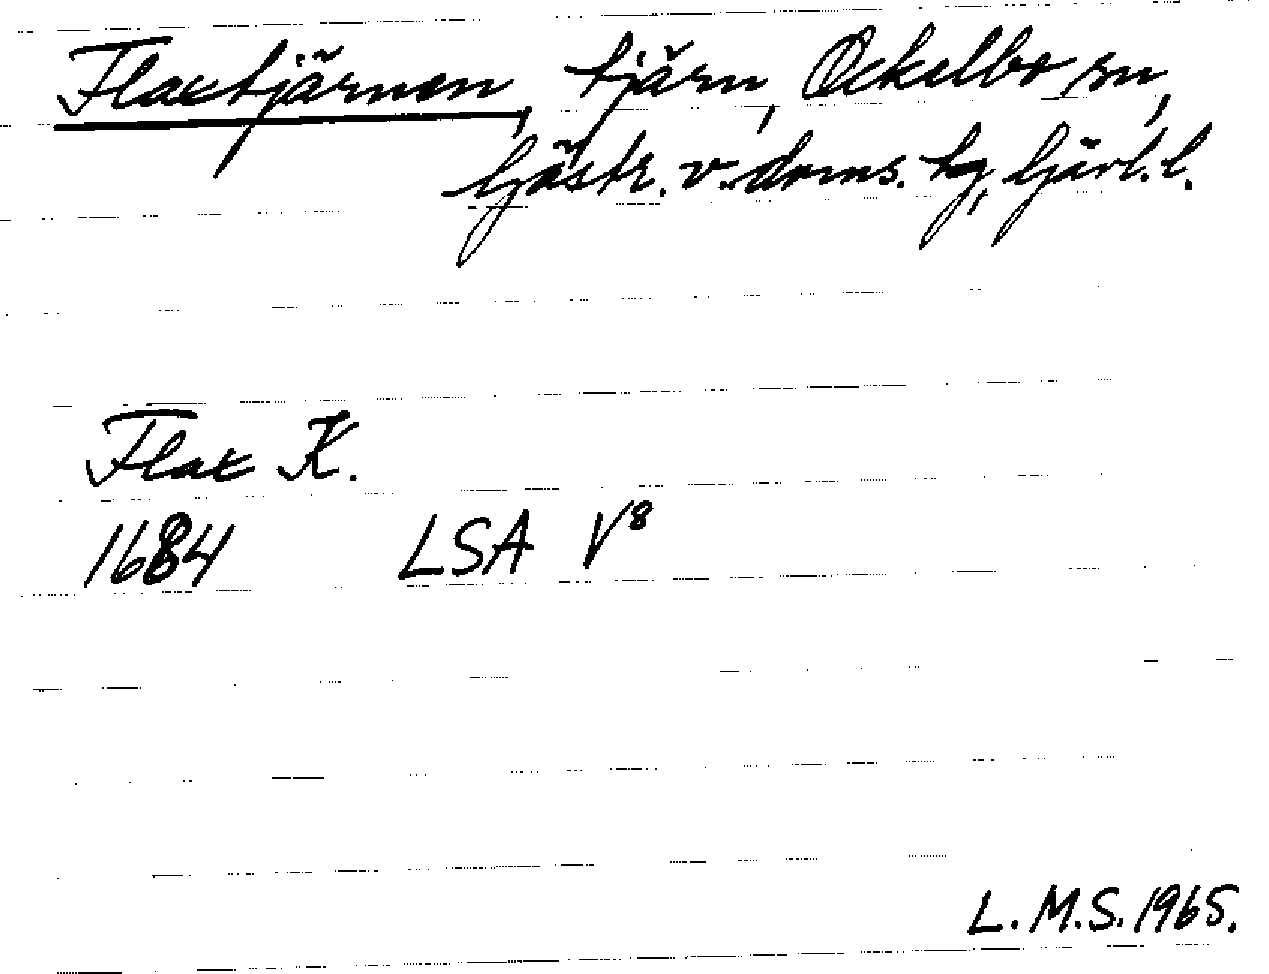 Flaxtjärnen, tjärn, Ockelbo sn,
Gästr. v. doms. tg, Gävl. l.
Flax K.
1684 LSA V⁸
L.M.S. 1965.